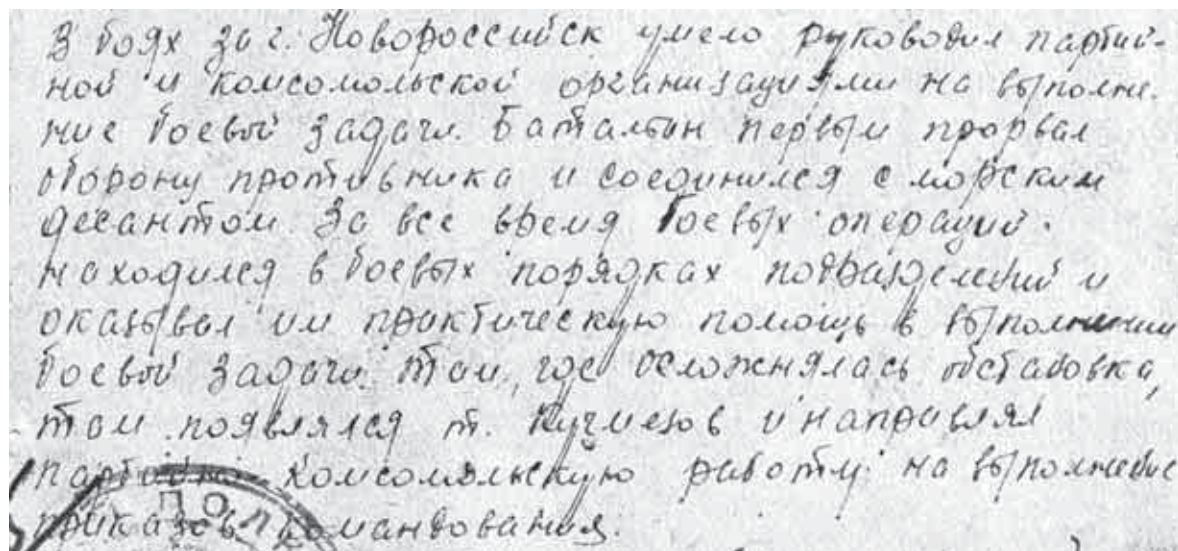 В боях за г. Новороссийск умело руководил партий-
ной и комсомольской организациями на выполне-
ние боевой задачи. Батальон первым прорвал
оборону противника и соединился с морским
десантом. За все время боевых операций.
находился в боевых порядках подразделений и
оказывал им практическую помощь в выполнении
боевой задачи. Там, где осложнялась обстановка,
там появлялся т. Кучмезов и направлял
партийно комсомольскую работу на выполнение
приказов командования.
ПОЛ